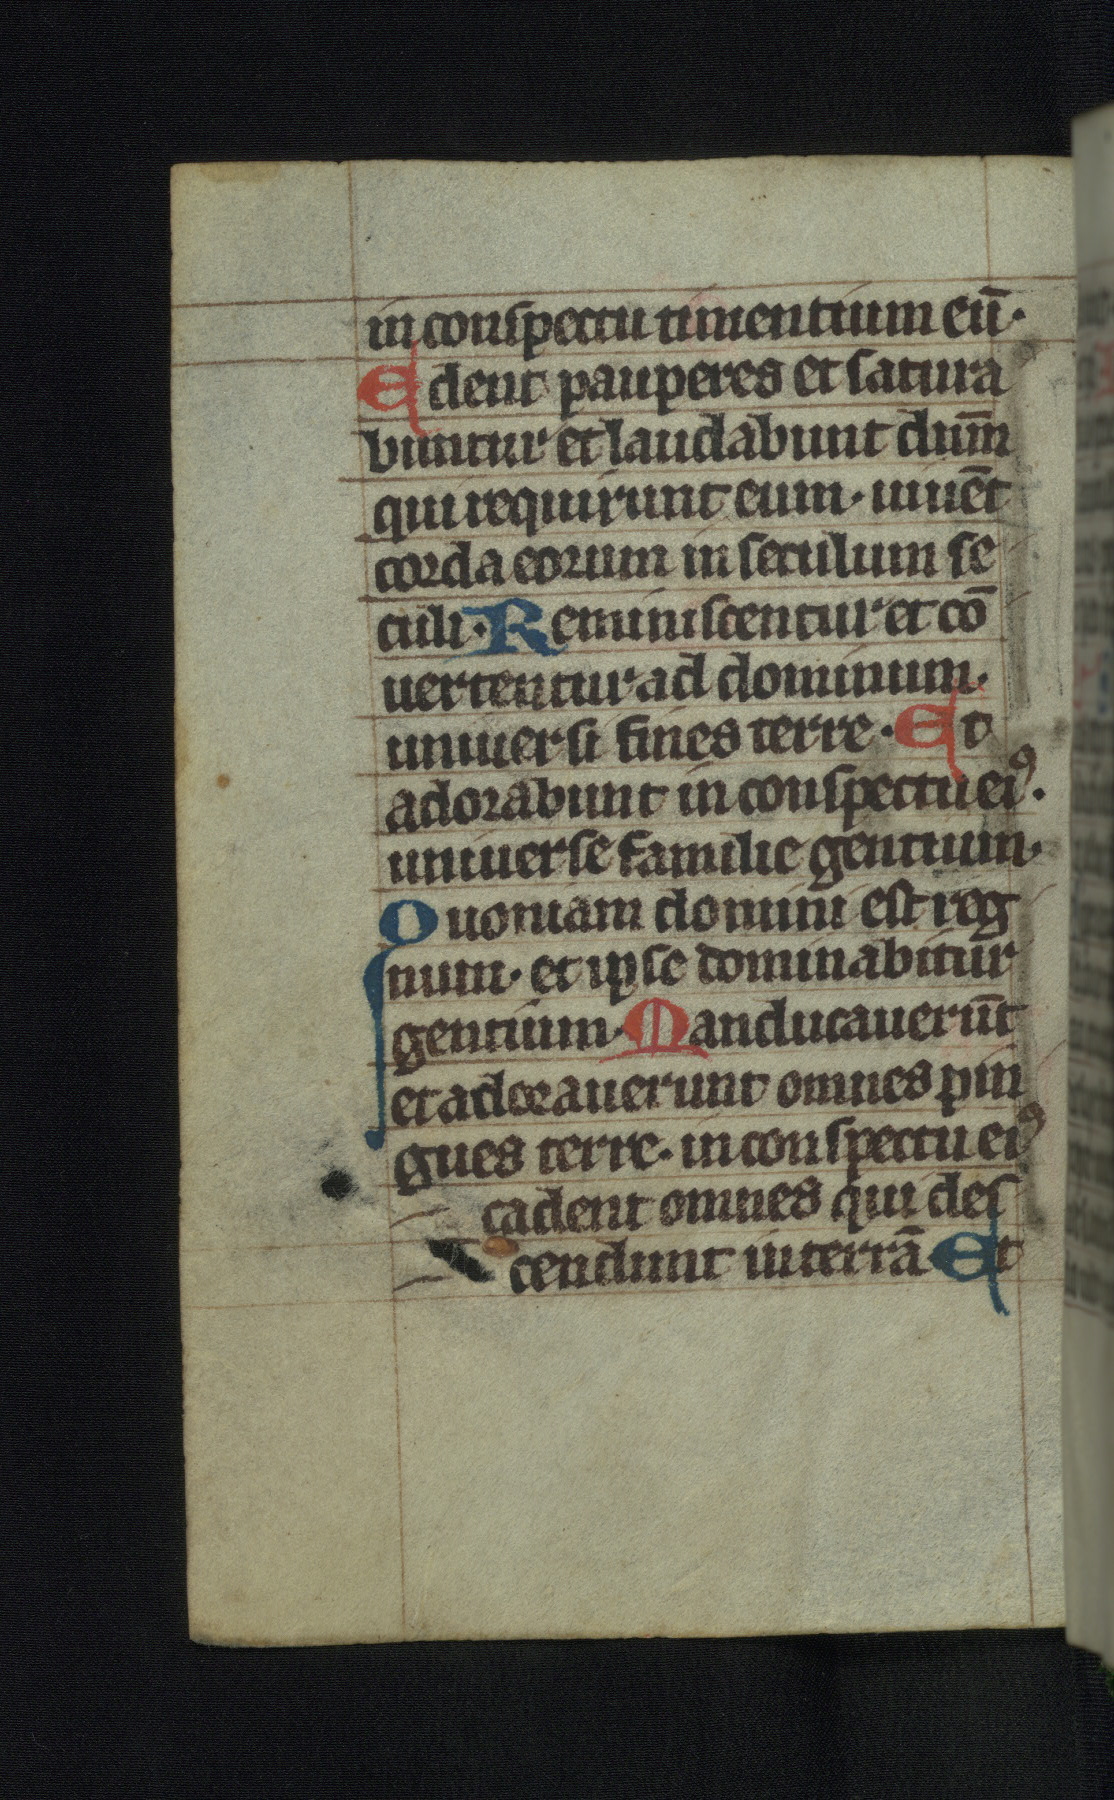 in conspectu timentium eū·
Edent pauperes et satura
buntur et laudabunt dnm̄
qui requirunt eum· uiuēt
corda eorum in seculum se
culi· Reminiscentur et cō
uertentur ad dominum·
uniuersi fines terre· Et
adorabunt in conspectu eiꝰ·
uniuerse familie gentium·
Quoniam domini est reg
num· et ipse dominabitur
gentium· Manducauerūt
et adorauerunt omnes pin
gues terre· in conspectu eiꝰ
cadent omnes qui des
cendunt in terrā Et